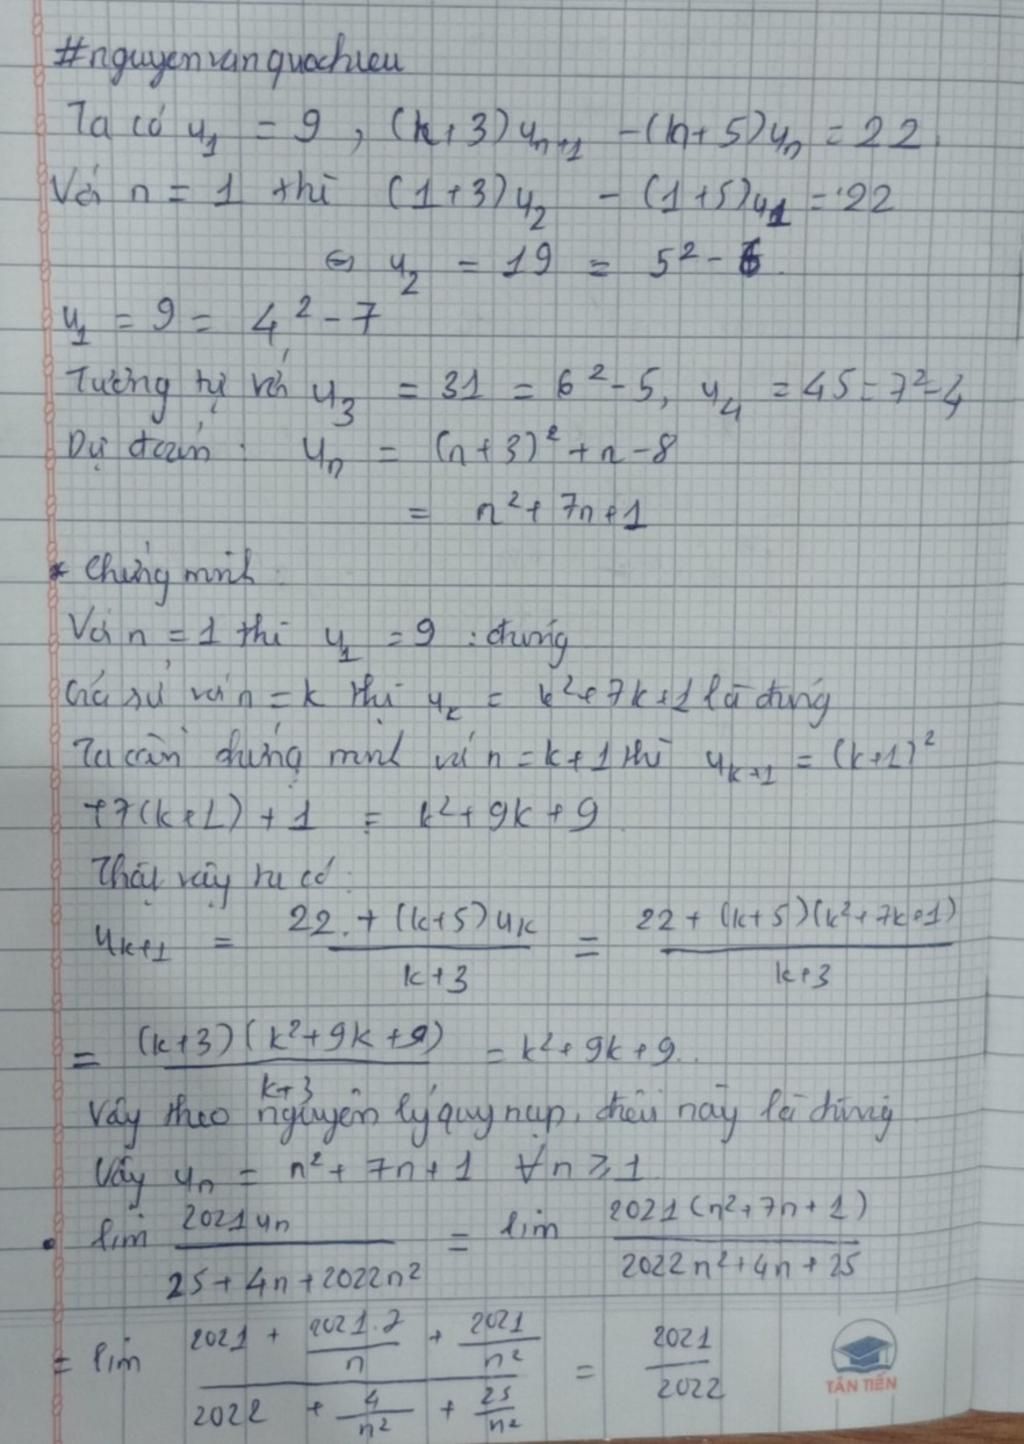 #nguyenvanquochieu
Ta có u₁ = 9, (n+3)uₙ₊₁ − (n+5)uₙ = 22.
Với n = 1 thì (1+3)u₂ − (1+5)u₁ = 22
⇔ u₂ = 19 = 5² − 6.
u₁ = 9 = 4² − 7
Tương tự với u₃ = 31 = 6² − 5, u₄ = 45 = 7² − 4
Dự đoán: uₙ = (n+3)² + n − 8
= n² + 7n + 1
* Chứng minh:
Với n = 1 thì u₁ = 9 : đúng
Giả sử với n = k thì uₖ = k² + 7k + 1 là đúng
Ta cần chứng minh với n = k+1 thì uₖ₊₁ = (k+1)²
+7(k+1) + 1 = k² + 9k + 9
Thật vậy ta có:
uₖ₊₁ = \frac{22 + (k+5)uₖ}{k+3} = \frac{22 + (k+5)(k²+7k+1)}{k+3}
= \frac{(k+3)(k²+9k+9)}{k+3} = k² + 9k + 9.
Vậy theo nguyên lý quy nạp, điều này là đúng
Vậy uₙ = n² + 7n + 1 ∀n ≥ 1
• lim \frac{2021uₙ}{25 + 4n + 2022n²} = lim \frac{2021(n²+7n+1)}{2022n²+4n+25}
= lim \frac{2021 + \frac{2021.7}{n} + \frac{2021}{n²}}{2022 + \frac{4}{n²} + \frac{25}{n²}} = \frac{2021}{2022}
TÂN TIẾN